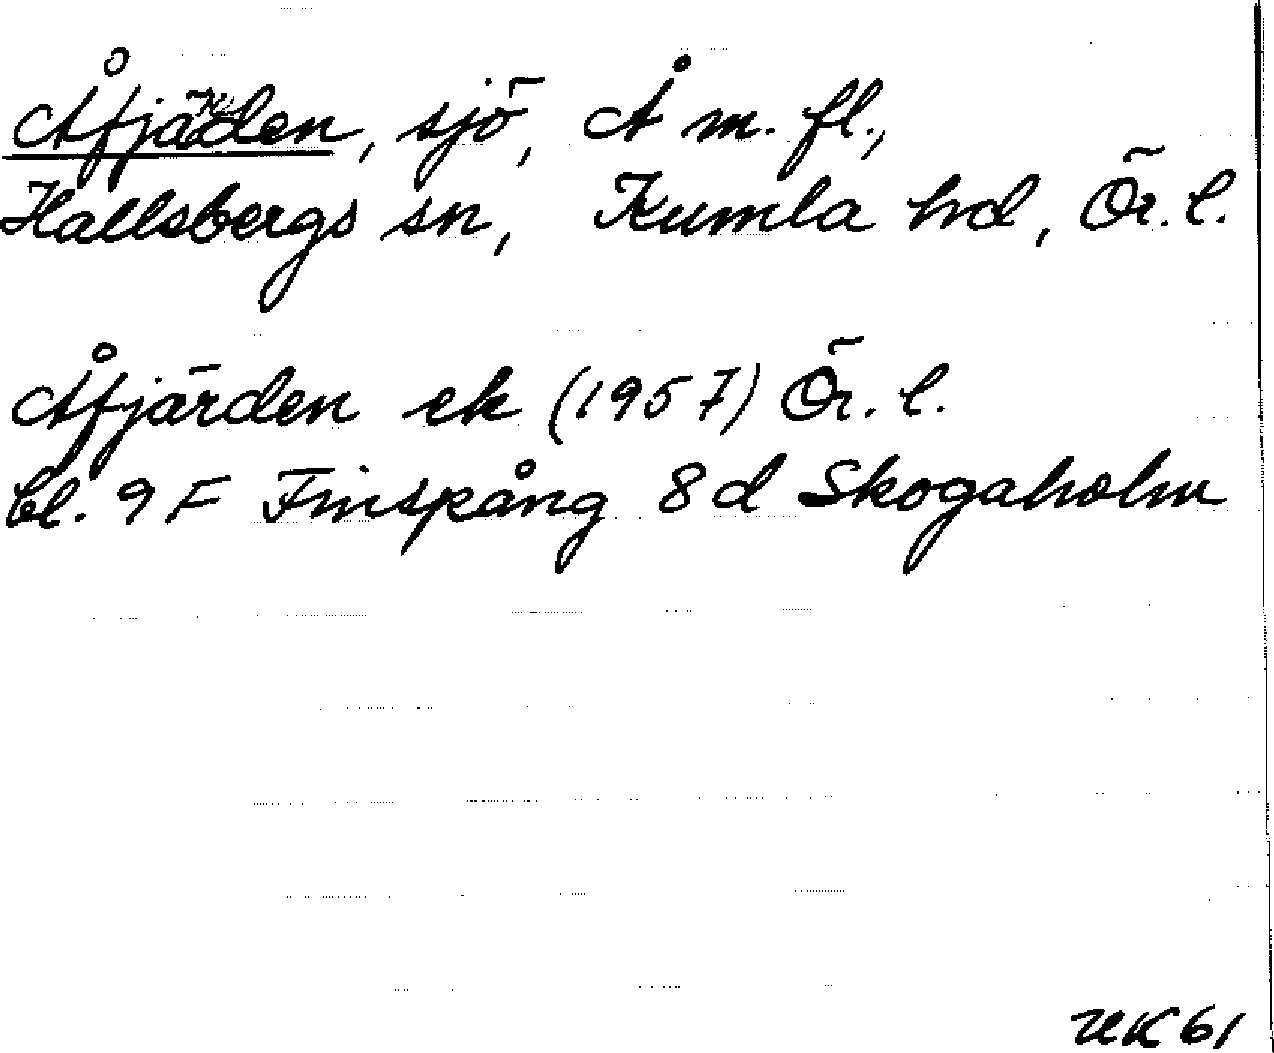 Åfjärden, sjö, Å m. fl.,
Hallsbergs sn, Kumla hd, Ör. l.
Åfjärden ek (1957) Ör. l.
bl. 9 F Finspång 8 d Skogaholm
UK 61